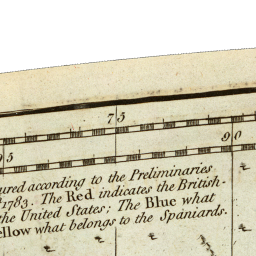 75
90
95
ured according to the Preliminaries
1783. The Red indicates the British-
the United States; The Blue what
ellow what belongs to the Spaniards.